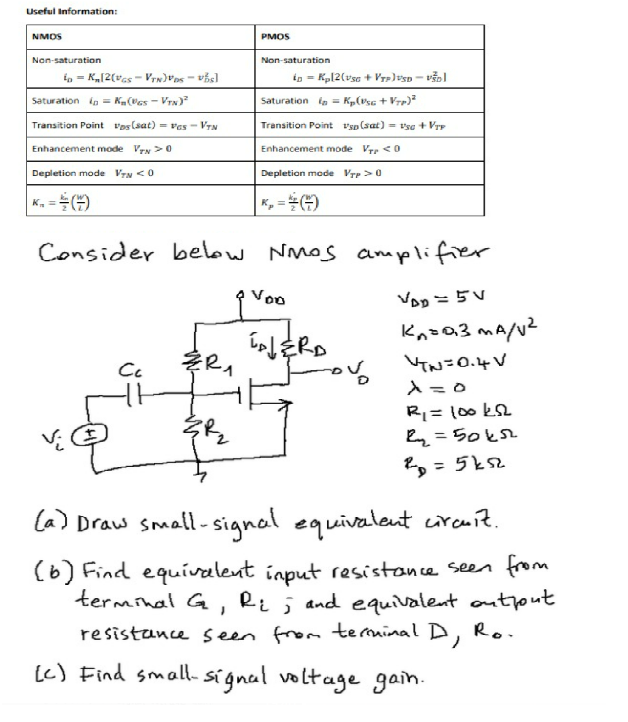 Useful Information:
NMOS PMOS
Non-saturation Non-saturation
i_D = K_n[2(v_GS − V_TN)v_DS − v²_DS] i_D = K_p[2(v_SG + V_TP)v_SD − v²_SD]
Saturation i_D = K_n(v_GS − V_TN)² Saturation i_D = K_p(v_SG + V_TP)²
Transition Point v_DS(sat) = v_GS − V_TN Transition Point v_SD(sat) = v_SG + V_TP
Enhancement mode V_TN > 0 Enhancement mode V_TP < 0
Depletion mode V_TN < 0 Depletion mode V_TP > 0
K_n = k'_n/2 (W/L) K_p = k'_p/2 (W/L)
Consider below NMOS amplifier
V_DD
V_DD = 5V
K_n = 0.3 mA/V²
i_D R_D
R_1
V_TN = 0.4V
V_o
C_c
λ = 0
R_1 = 100 kΩ
V_i
R_2
R_2 = 50 kΩ
R_D = 5 kΩ
(a) Draw small-signal equivalent circuit.
(b) Find equivalent input resistance seen from
terminal G, Ri ; and equivalent output
resistance seen from terminal D, Ro.
(c) Find small-signal voltage gain.